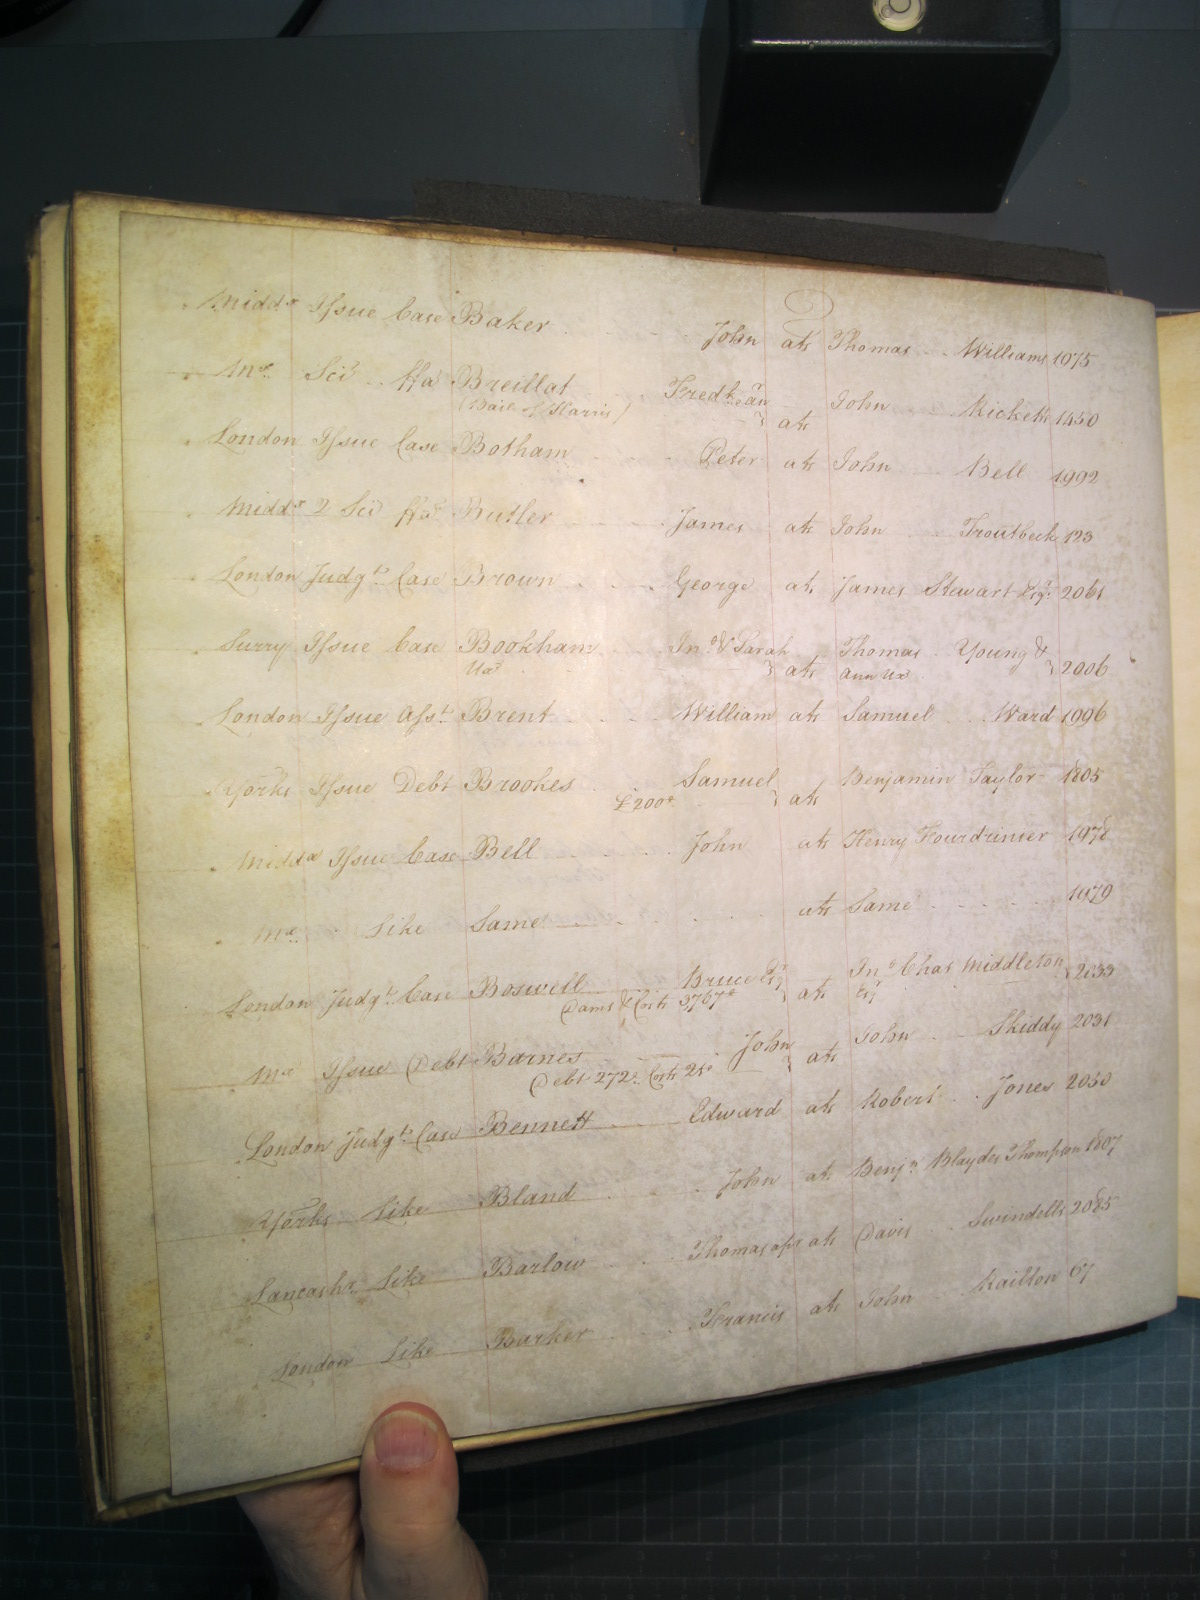 Midd.x Issue Case Baker John ats Thomas Williams 1075
M.x Sci ffa Breillat Fred.k ats John Ricketts 1450
(Bail of Harris)
London Issue Case Botham Peter ats John Bell 1992
Midd.x 2 Sci ffa Butler James ats John Troutbeck 123
London Judg.t Case Brown George ats James Stewart Esq.r 2061
Surry Issue Case Bookham Jn.o & Sarah ats Thomas Young & 2006
Ux Ann Ux
London Issue Ass.t Brent William ats Samuel Ward 1996
Yorks Issue Debt Brookes Samuel ats Benjamin Taylor 1805
£200
Midd.x Issue Case Bell John ats Henry Fourdrinier 1978
M.x Like Same ats Same 1979
London Judg.t Case Boswell Bruce Esq ats Jn.o Chas Middleton 2033
Dams & Costs 3767 Esq
M.x Issue Debt Barnes John ats John Skiddy 2031
Debt 272 Costs 25
London Judg.t Case Bennett Edward ats Robert Jones 2030
Yorks Like Bland John ats Benj.n Blaydes Thompson 1807
Lancash.r Like Barlow Thomas ats Davis Swindells 2085
London Like Barker Francis ats John Railton 67